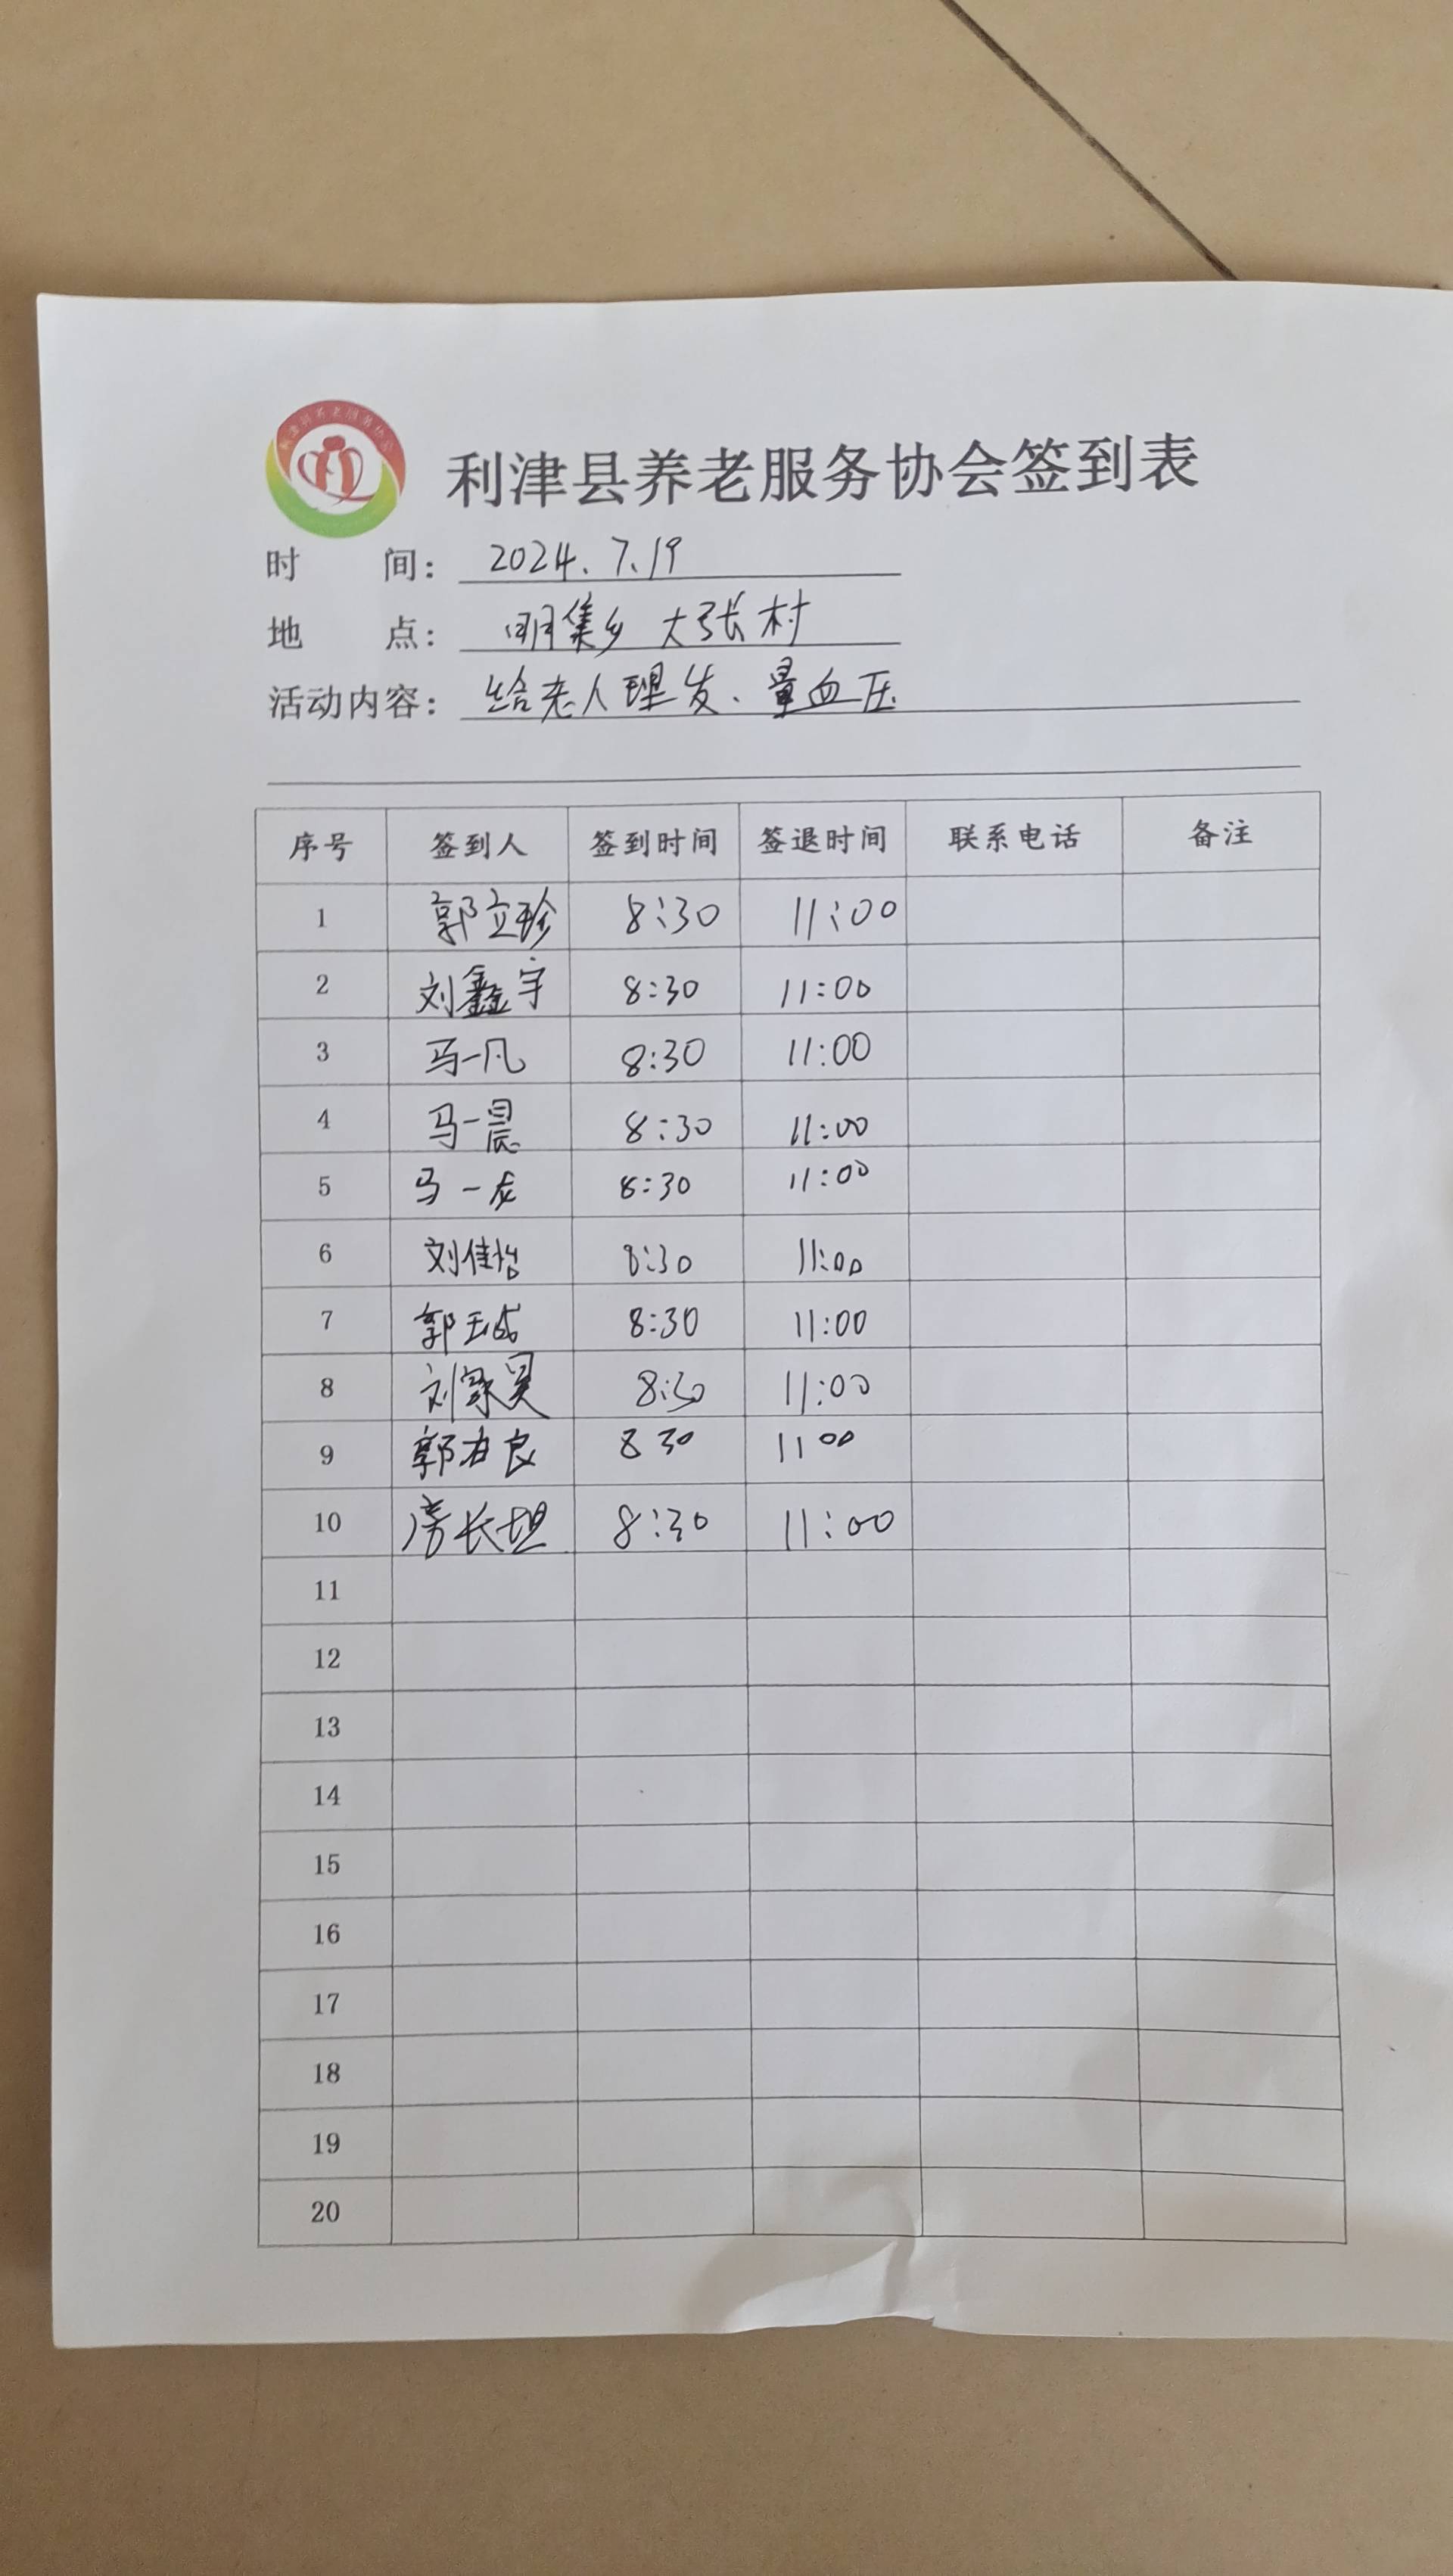 利津县养老服务协会
利津县养老服务协会签到表
时 间： 2024.7.19
地 点： 明集乡 大张村
活动内容： 给老人理发、量血压
序号 签到人 签到时间 签退时间 联系电话 备注
1 郭立珍 8:30 11:00
2 刘鑫宇 8:30 11:00
3 马一凡 8:30 11:00
4 马一晨 8:30 11:00
5 马一龙 8:30 11:00
6 刘佳怡 8:30 11:00
7 郭玉 8:30 11:00
8 刘家昊 8:30 11:00
9 郭 良 8 30 11 00
10 房长坦 8:30 11:00
11
12
13
14
15
16
17
18
19
20